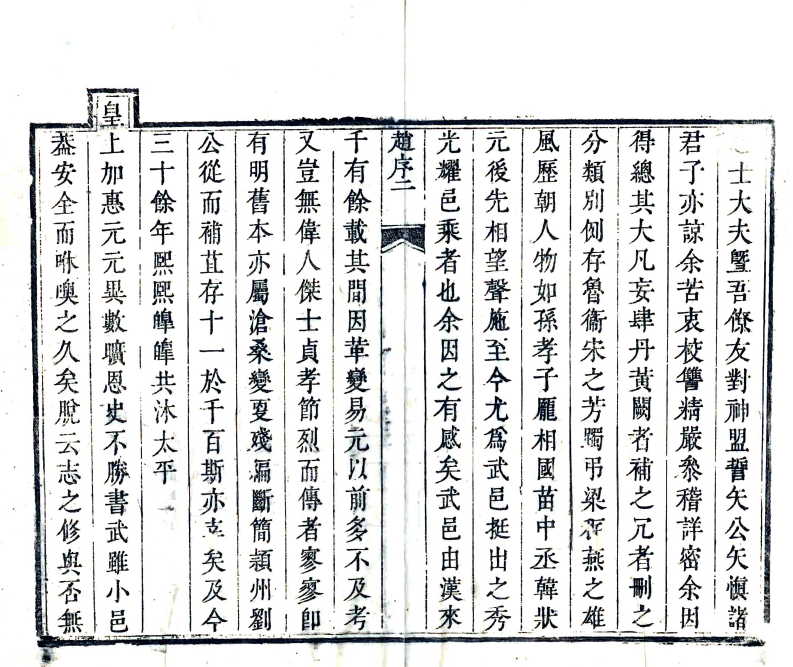 士大夫暨吾僚友對神盟誓矢公矢慎諸
君子亦諒余苦衷校讐精嚴叅稽詳密余因
得總其大凡妄肆丹黃闕者補之冗者刪之
分類別例存魯衞宋之芳躅弔梁燕之雄
風歷朝人物如孫孝子龎相國苗中丞韓狀
元後先相望聲施至今尤爲武邑挺出之秀
光耀邑乘者也余因之有感矣武邑由漢來
趙序二
千有餘載其間因革變易元以前多不及考
又豈無偉人傑士貞孝節烈而傳者寥寥卽
有明舊本亦屬滄桑變更殘漏斷簡潁州劉
公從而補苴存十一於千百斯亦幸矣及今
三十餘年熙熙皥皥共沐太平
皇上加惠元元異數曠恩史不勝書武雖小邑
葢安全而咻噢之久矣脫云志之修與否無